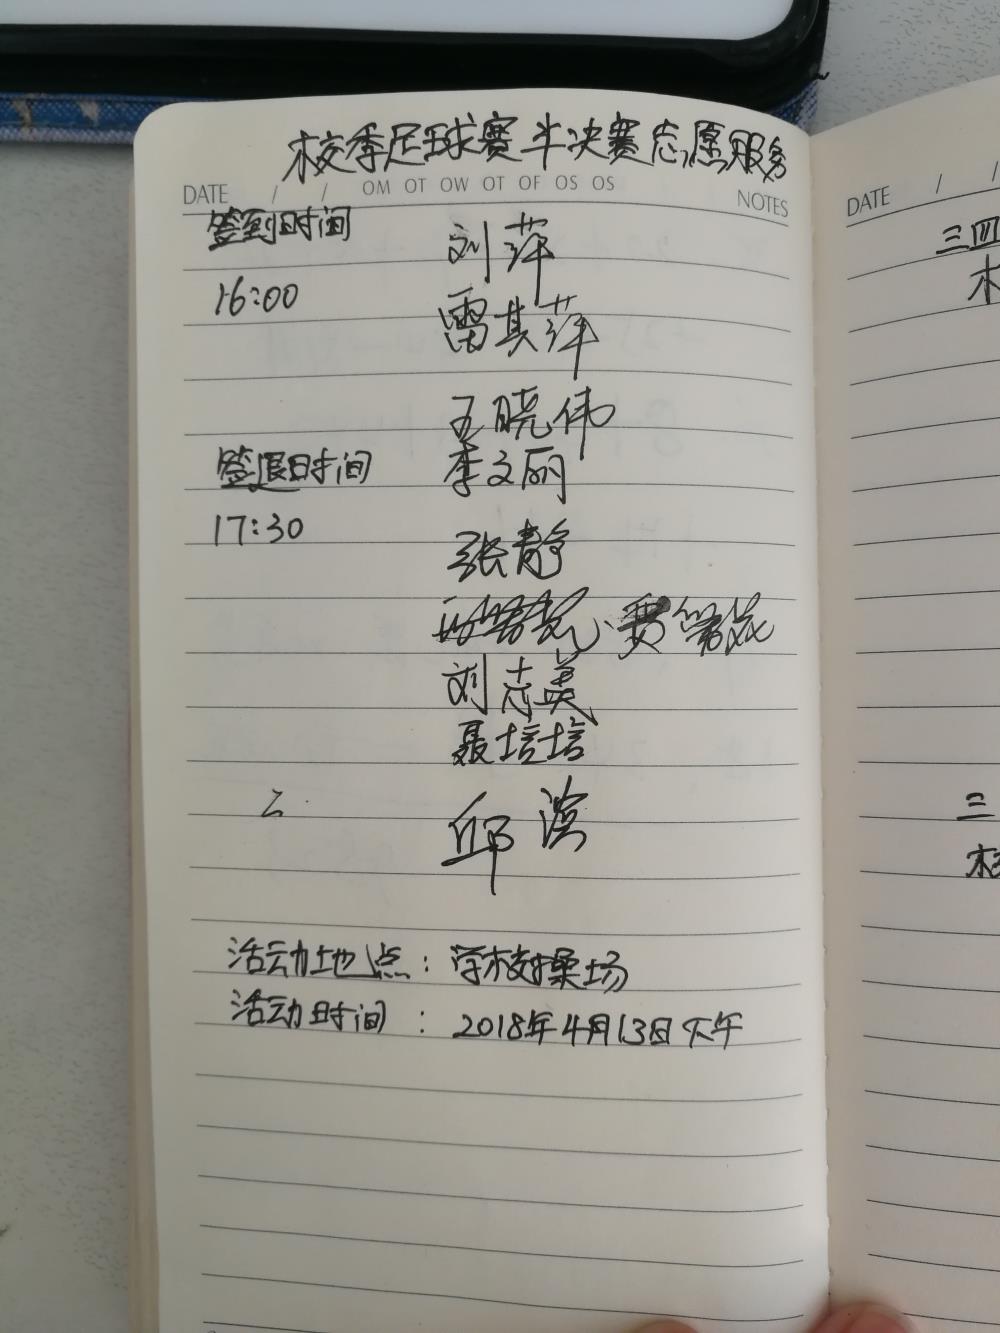 校季足球赛半决赛志愿服务
DATE / / OM OT OW OT OF OS OS NOTES
签到时间
刘萍
16:00
雷其萍
王晓伟
签退时间
李文丽
17:30
张静
刘志英
聂培培
邱滨
活动地点：学校操场
活动时间：2018年4月13日下午
DATE / /
三四
三